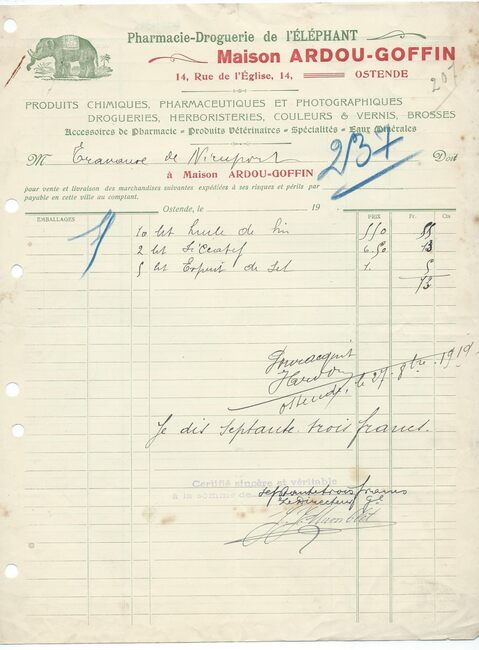 Pharmacie-Droguerie de l'ÉLÉPHANT
Maison ARDOU-GOFFIN
14, Rue de l'Église, 14, OSTENDE
207
PRODUITS CHIMIQUES, PHARMACEUTIQUES ET PHOTOGRAPHIQUES
DROGUERIES, HERBORISTERIES, COULEURS & VERNIS, BROSSES
Accessoires de Pharmacie - Produits Vétérinaires - Spécialités - Eaux Minérales
M de Nieuport 237 Doit
à Maison ARDOU-GOFFIN
pour vente et livraison des marchandises suivantes expédiées à ses risques et périls par
payable en cette ville au comptant.
Ostende, le 19
EMBALLAGES PRIX Fr. Cts
10 lit huile de lin 5,50 55
2 lit Siccatif 6.50 13
5 lit Esprit de Sel 1. 5
73
Pour acquit
Ostende, le 27 8bre 1919
Je dis septante trois francs.
Certifié sincère et véritable
à la somme de septante trois francs
Le Directeur gl